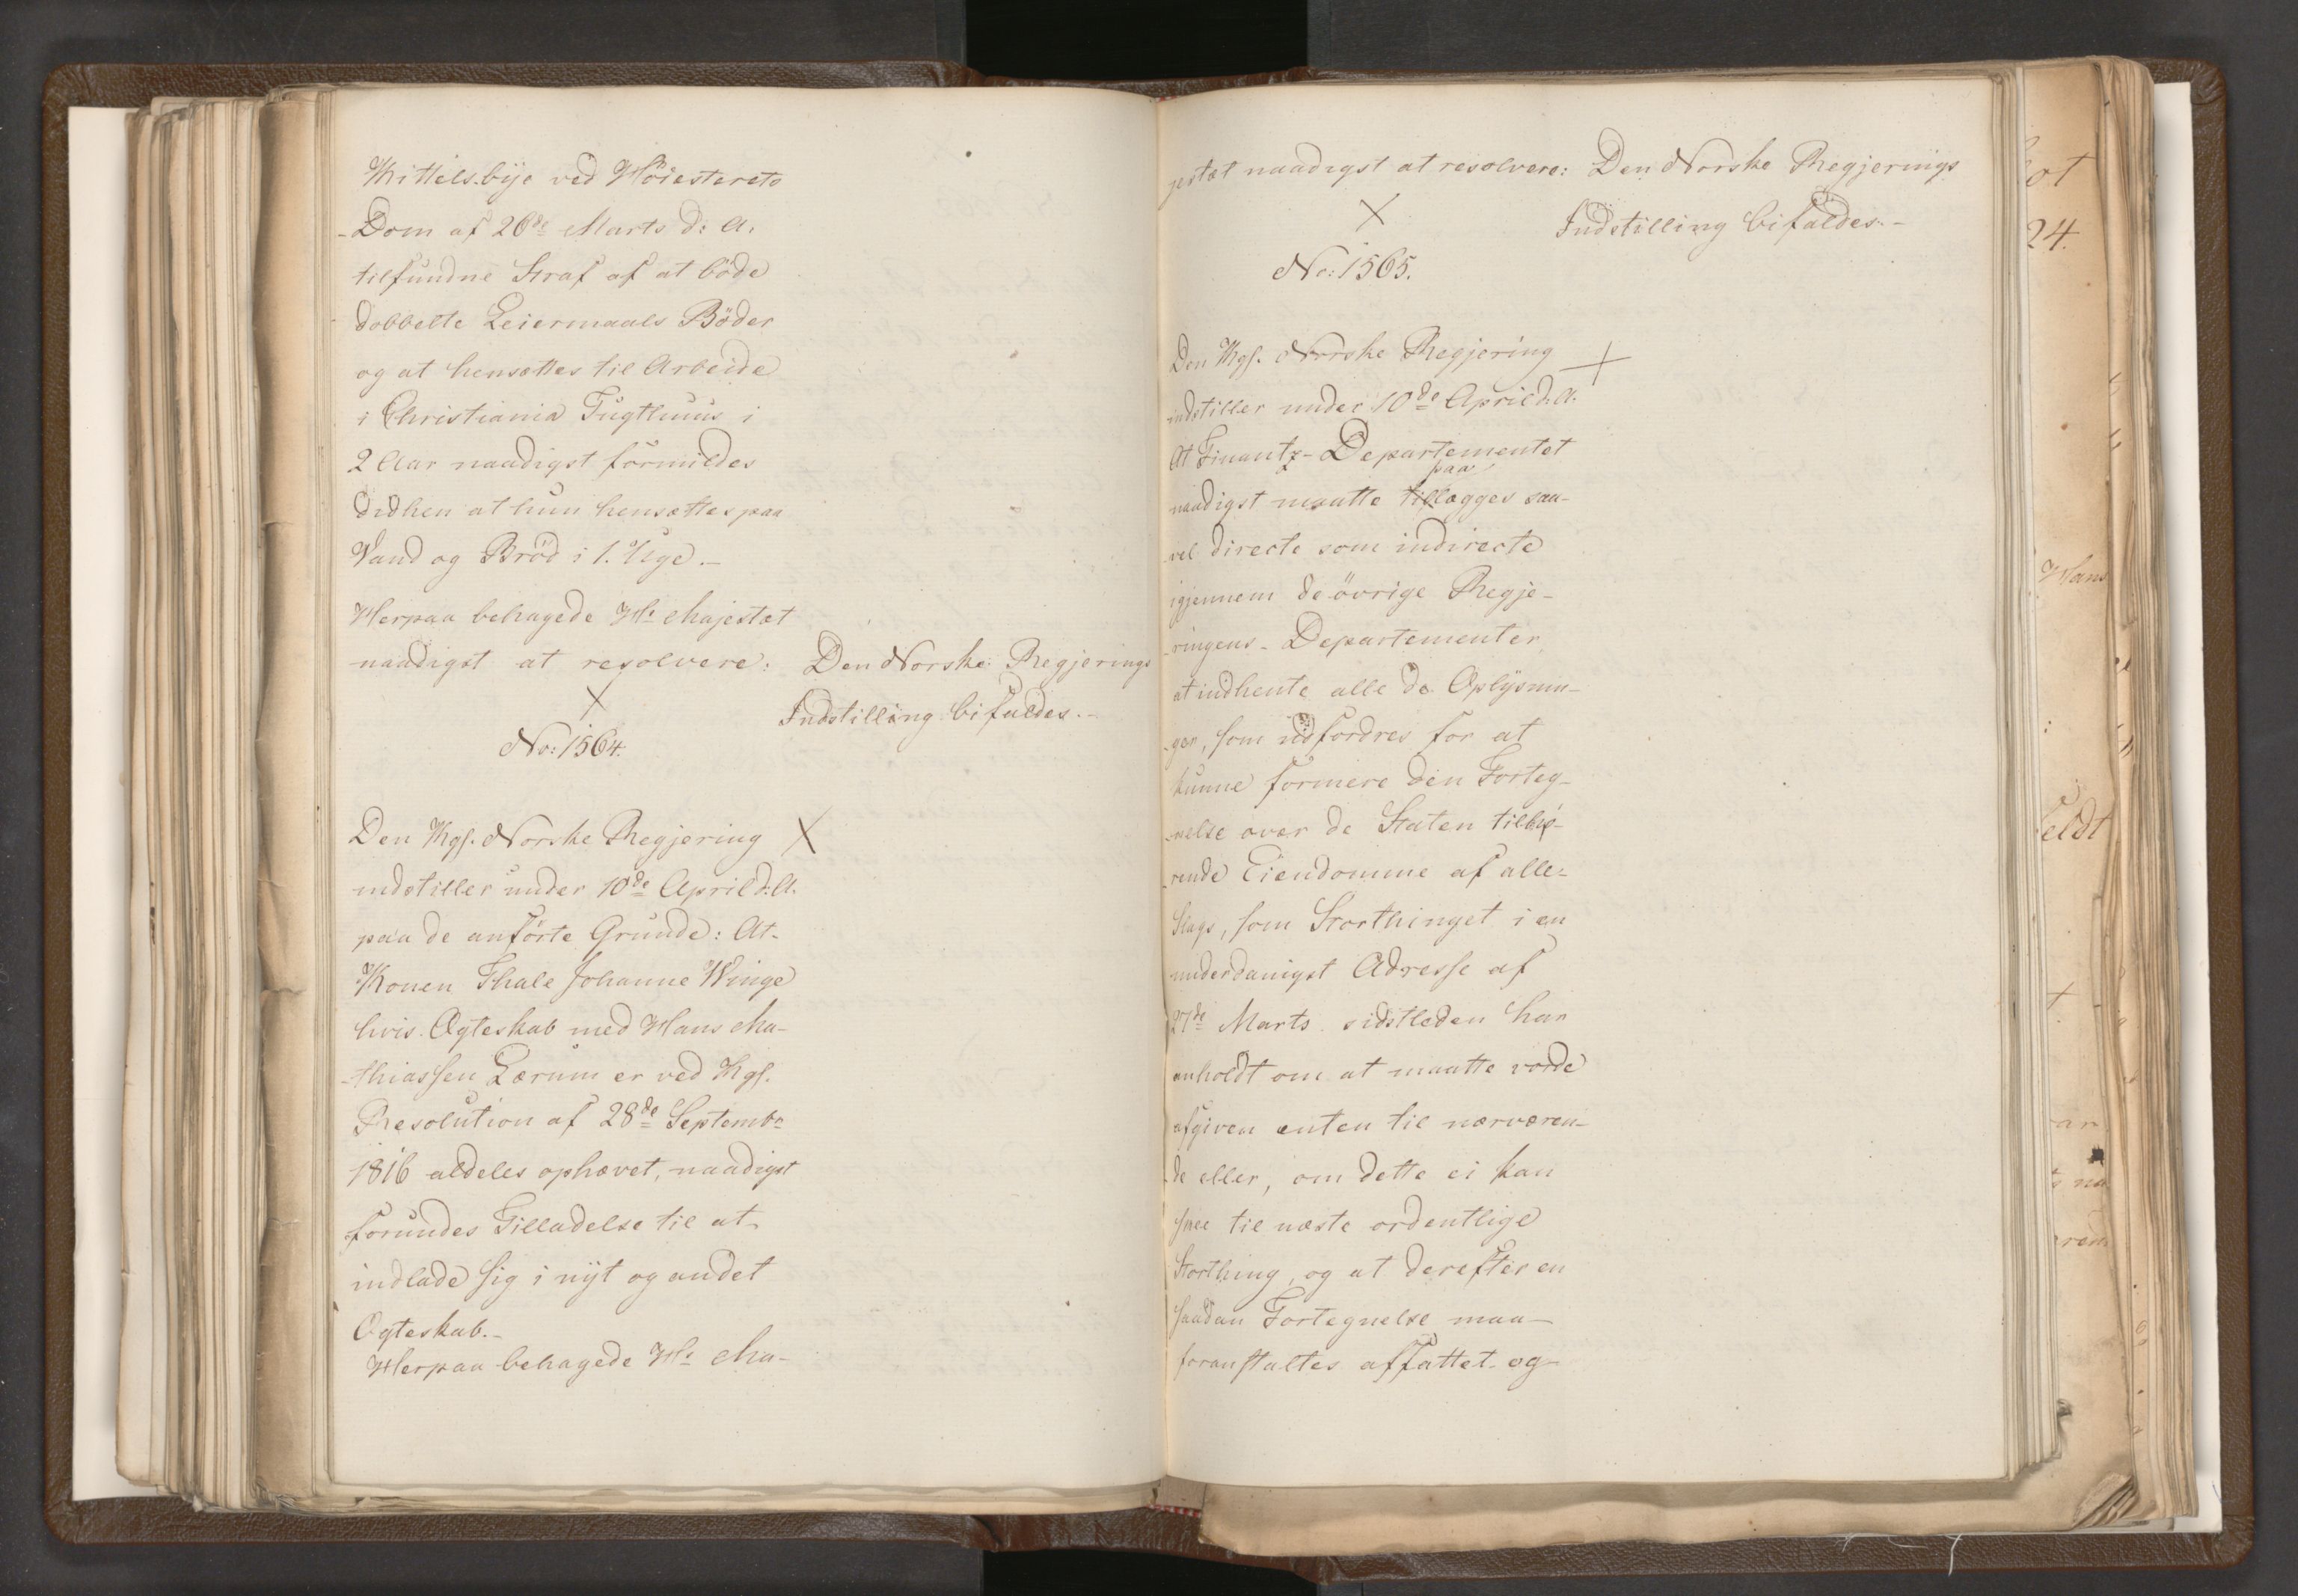 Kittelsbÿe ved Höiesterets
-Dom af 26de Marts d: A.
tilfundne Straf af at böde
dobbelte Leiermaals Böder
og at hensættes til Arbeide
i Christiania Tugthuus i
2 Aar naadigst formildes
didhen at hun hensættes paa
Vand og Bröd i 1. Uge.-
Herpaa behagede Hs Majestæt
naadigst at resolvere: Den Norske Regjerings
Indstilling bifaldes.-
No: 1564.
Den Kgl. Norske Regjering
indstiller under 10de April d: A.
paa de anförte Grunde: At-
Konen Thale Johanne Winge
hvis Ægteskab med Hans Ma-
-thiassen Lærum er ved Kgl.
Resolution af 28de Septembr
1816 aldeles ophævet, naadigst
forundes Tilladelse til at
indlade sig i nÿt og andet
Ægteskab.-
Herpaa behagede Hs Ma-
jestæt naadigst at resolvere: Den Norske Regjerings
Indstilling bifaldes.-
No: 1565.
Den Kgl. Norske Regjering
indstiller under 10de April d: A.
At Finantz-Departementet
paa
naadigst maatte tillægges saa-
vel directe som indirecte
igjennem de övrige Regje-
-ringens-Departementer
at indhente alle de Oplÿsnin-
-ger, som udfordres for at
kunne formere den Forteg-
-nelse over de Staten tilhö-
-rende Eiendomme af alle-
Slags, som Storthinget i en
underdanigst Adresse af
27de Marts sidstleden har
anholdt om at maatte vorde
afgiven enten til nærværen-
de eller, om dette ei kan
skee til næste ordentlige
Storthing, og at derefter en
saadan Fortegnelse maa-
foranstaltes affattet og
ot
24.
Hans
eldt